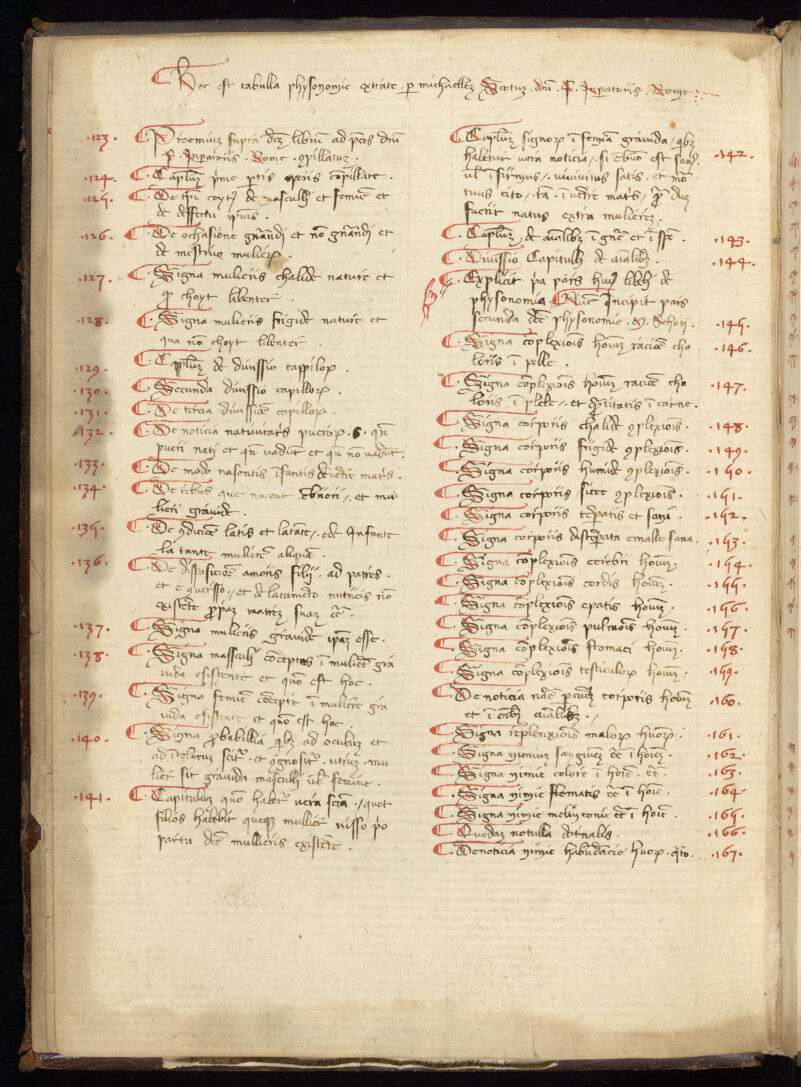 Hoc est tabulla physonomie extrate . p michaellez Scotuz . dni . F . Inpatoris . Rome
.123. Proemiuz supra dcz librum ad pces dni
.F. Inpatoriis . Rome . 9pillatuz .
.124. Caplum pme ptis operis copillate .
.125. De tpr coytus de masculli et femie et
de deffectu ipsius .
.126. De ochasione gnandi et no gnandi et
de mestruo mulierz .
.127. Signa mulieris chalide nature et
q choyt libenter .
.128. Signa mulieris frigide nature et
qua non choyt libenter .
.129. Capplum de divissio cappilorz .
.130. Secunda divissio capillorz .
.131. De tercia divissioe capillorz .
.132. De noticia nativitatis pueroz . 6 . qn
pueri nati et qn vadut et qn no vadut .
.133. De modo nasentis isantis de utre matris .
.134. De rebus que nocent et mu
lieri gravide .
.135. De 9dicioe latis et latate , ede Infante
la tante muliere aliqua .
.136. De dispositioe amoris filij . ad patres .
et e 9verisso , et de latameto nutricis no
existete propaz matrez suaz ee .
.137. Signa mulieris gravide ipaz esse .
.138. Signa masculi conceptus i muliere gra
vida existente et quo est hoc .
.139. Signa femie concepte i muliere gra
vida esistente et quo est hoc .
.140. Signa probabillia qbz ad oculuz et
ad itelletus scitur . et 9gnositur . utruz . mu
lier sit gravida masculi vel femine .
.141. Capituluz quo habetur vera scia , quot
filios habebit queqz mullier visso po
partu dce mullieris existete .
Caplum signorz i femia gravida , qbz
habetur vera noticia , si ebuo est sanz . .142.
vl i firmus , vivivitus satis . et mo
tuus cito , ta . i utre matis , pro duz
fuerit natus extra mulierez .
Caplum . de aialibz i gne et i spe . .143.
Divissio Capituli de aialibz . .144.
Explicit pa pars huius libeli de
physonomia . Nuc Incipit pars
secunda dce physonomie . M. Schoti . .145.
Signa coplexiois houz racioe cho .146.
loris i pelle .
Signa coplexiois houz racioe cho .147.
loris . i pelle , et qntitatis i carne .
Signa corporis chalide 9plexiois . .148.
Signa corporis frigide 9plexiois . .149.
Signa corporis humide 9plexiois . .150.
Signa corporis sicce 9plexiois . .151.
Signa corporis teperatis et sani . .152.
Signa corporis disteperata emalle sana . .153.
Signa coplexiois cerebri houz . .154.
Signa coplexiois cordis houz . .155.
Signa coplexiois epatis houz . .156.
Signa coplexiois pulmois houz . .157.
Signa coplexiois stomaci houz . .158.
Signa coplexiois testiculorz houz . .159.
De noticia corporis houz .160.
et i oibz aialibz .
Signa replenxiois malorz huorz . .161.
Signa nimiuz sanguiez ee i hoiez . .162.
Signa nimie colore i hoie . ee . .163.
Signa nimie flematis ee i hoie . .164.
Signa nimie melenconic ee i hoie . .165.
Quedaz notulla dotnalis . .166.
De noticia nimie habundacie huorz . .167.